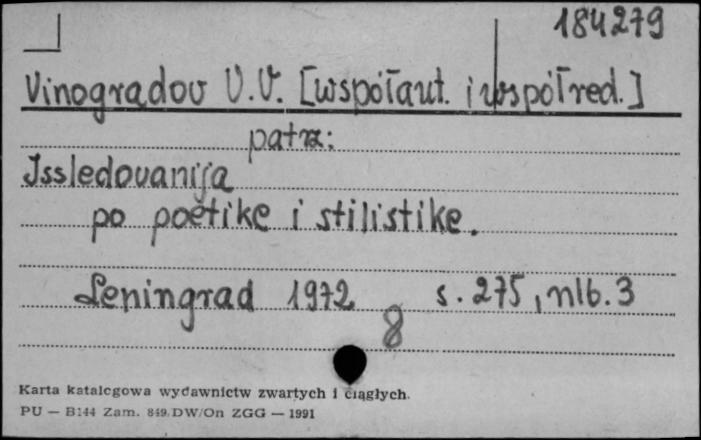 184279
Vinogradov V.V. [współaut. i współred.]
patrz:
Issledovanija
po poetike i stilistike.
Leningrad 1972 s. 275, nlb. 3
8
Karta katalogowa wydawnictw zwartych i ciągłych.
PU — B144 Zam. 849.DW/On ZGG — 1991